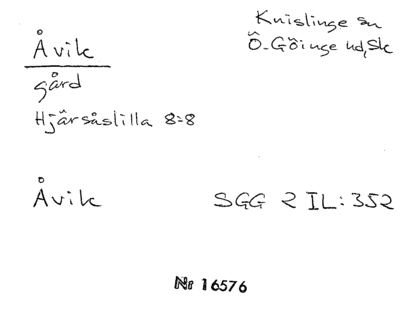 Åvik
Knislinge sn
Ö. Göinge hd, Sk
gård
Hjärsåslilla 8:8
Åvik
SGG 2 IL: 352
Nr 16576